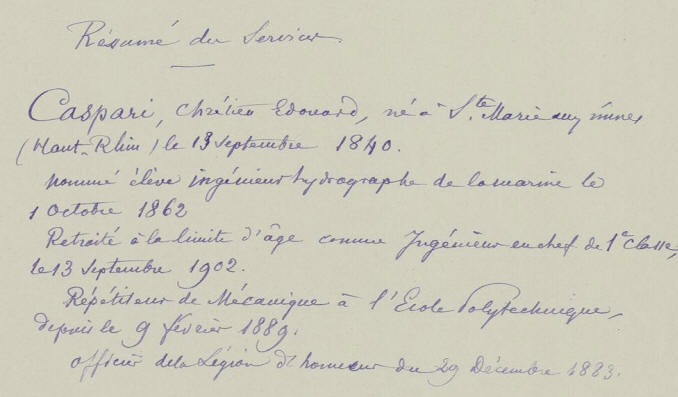 Résumé du Services
Caspari, Chrétien Edouard, né à Ste Marie aux mines
(Haut-Rhin) le 13 septembre 1840.
nommé élève ingénieur hydrographe de la marine le
1 Octobre 1862
Retraité à la limite d'âge comme Ingénieur en chef de 1e classe,
le 13 septembre 1902.
Répétiteur de Mécanique à l'Ecole Polytechnique,
depuis le 9 février 1889.
officier de la Légion d'honneur du 29 Décembre 1883.